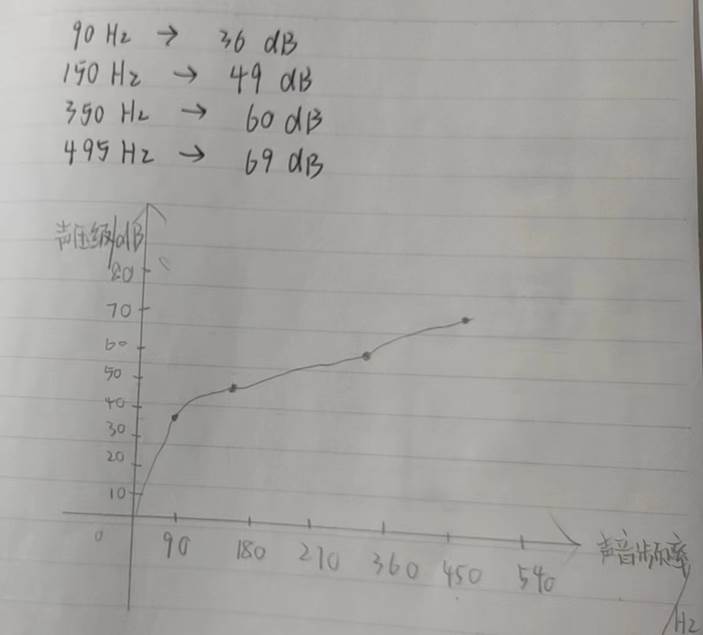 90 Hz → 36 dB
150 Hz → 49 dB
350 Hz → 60 dB
495 Hz → 69 dB
声压级/dB
80
70
60
50
40
30
20
10
0
90 180 270 360 450 540
声音频率
/Hz